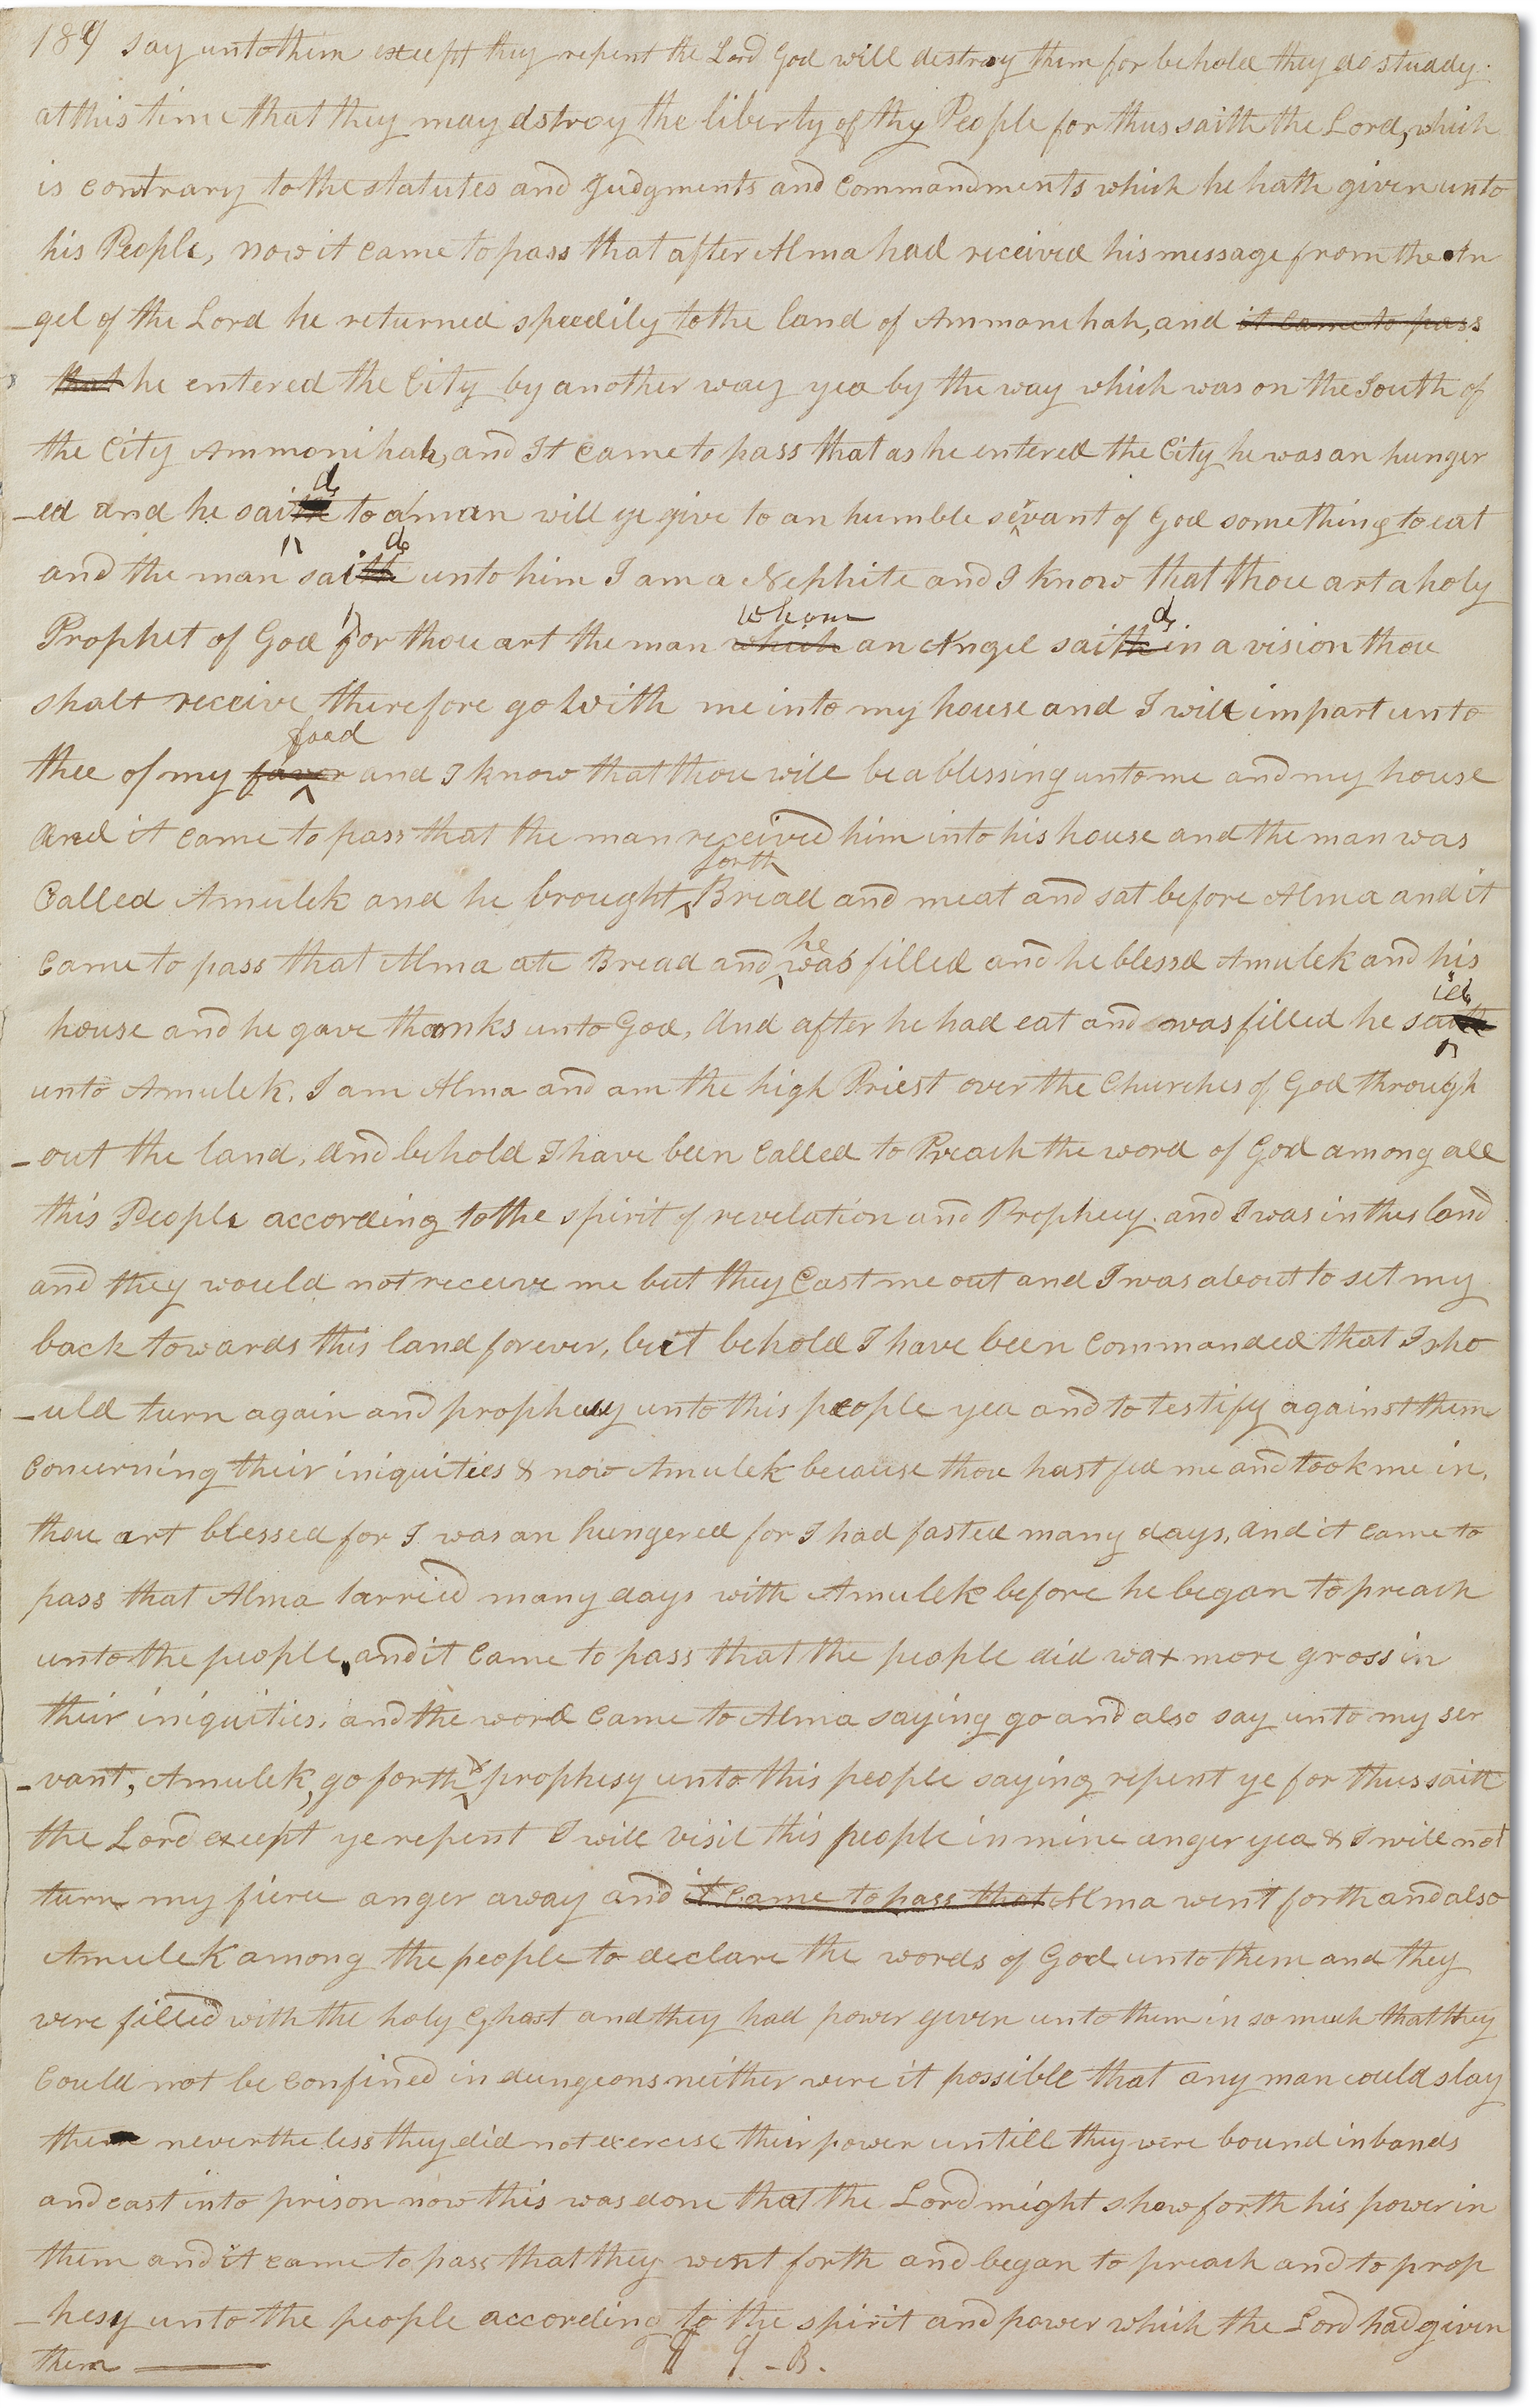 189 say unto them except they repent the Lord God will destroy them for behold they do studdy
at this time that they may dstroy the liberty of thy People for thus saith the Lord, which
is contrary to the statutes and Judgments and Commandments which he hath given unto
his People, now it came to pass that after Alma had received his message from the An
-gel of the Lord he returned speedily to the land of Ammonihah, and it came to pass
that he entered the City by another way yea by the way which was on the South of
the City Ammonihah, and It came to pass that as he entered the City he was an hunger
d
-ed and he saith to a man will ye give to an humble servant of God something to eat
d
and the man saith unto him I am a Nephite and I know that thou art a holy
whom d
Prophet of God for thou art the man which an Angel saith in a vision thou
shalt receive therefore go with me into my house and I will impart unto
food
thee of my favor and I know that thou will be a blessing unto me and my house
And it came to pass that the man received him into his house and the man was
forth
Called Amulek and he brought Bread and meat and sat before Alma and it
he
came to pass that Alma ate Bread and was filled and he blessd Amulek and his
id
house and he gave thanks unto God, And after he had eat and was filled he saith
unto Amulek, I am Alma and am the high Priest over the Churches of God through
-out the land, and behold I have been Called to Preach the word of God among all
this People according to the spirit of revelation and Prophecy. and I was in this land
and they would not receive me but they Cast me out and I was about to set my
back towards this land forever, but behold I have been Commanded that I sho
-uld turn again and prophesy unto this people yea and to testify against them
Concerning their iniquities & now Amulek because thou hast fed me and took me in,
thou art blessed for I was an hungered for I had fasted many days, and it came to
pass that Alma tarried many days with Amulek before he began to preach
unto the people, and it Came to pass that the people did wax more gross in
their iniquities, and the word Came to Alma saying go and also say unto my ser
&
-vant, Amulek, go forth prophesy unto this people saying repent ye for thus saith
the Lord except ye repent I will visit this people in mine anger yea & I will not
turn my fierce anger away and it Came to pass that Alma went forth and also
Amulek among the people to declare the words of God unto them and they
were filled with the holy Ghost and they had power given unto them in so much that they
Could not be Confined in dungeons neither were it possible that any man could slay
them nevertheless they did not exercise their power untill they were bound in bands
and cast into prison now this was done that the Lord might shew forth his power in
them and it came to pass that they went forth and began to preach and to prop
-hesy unto the people according to the spirit and power which the Lord had given
them